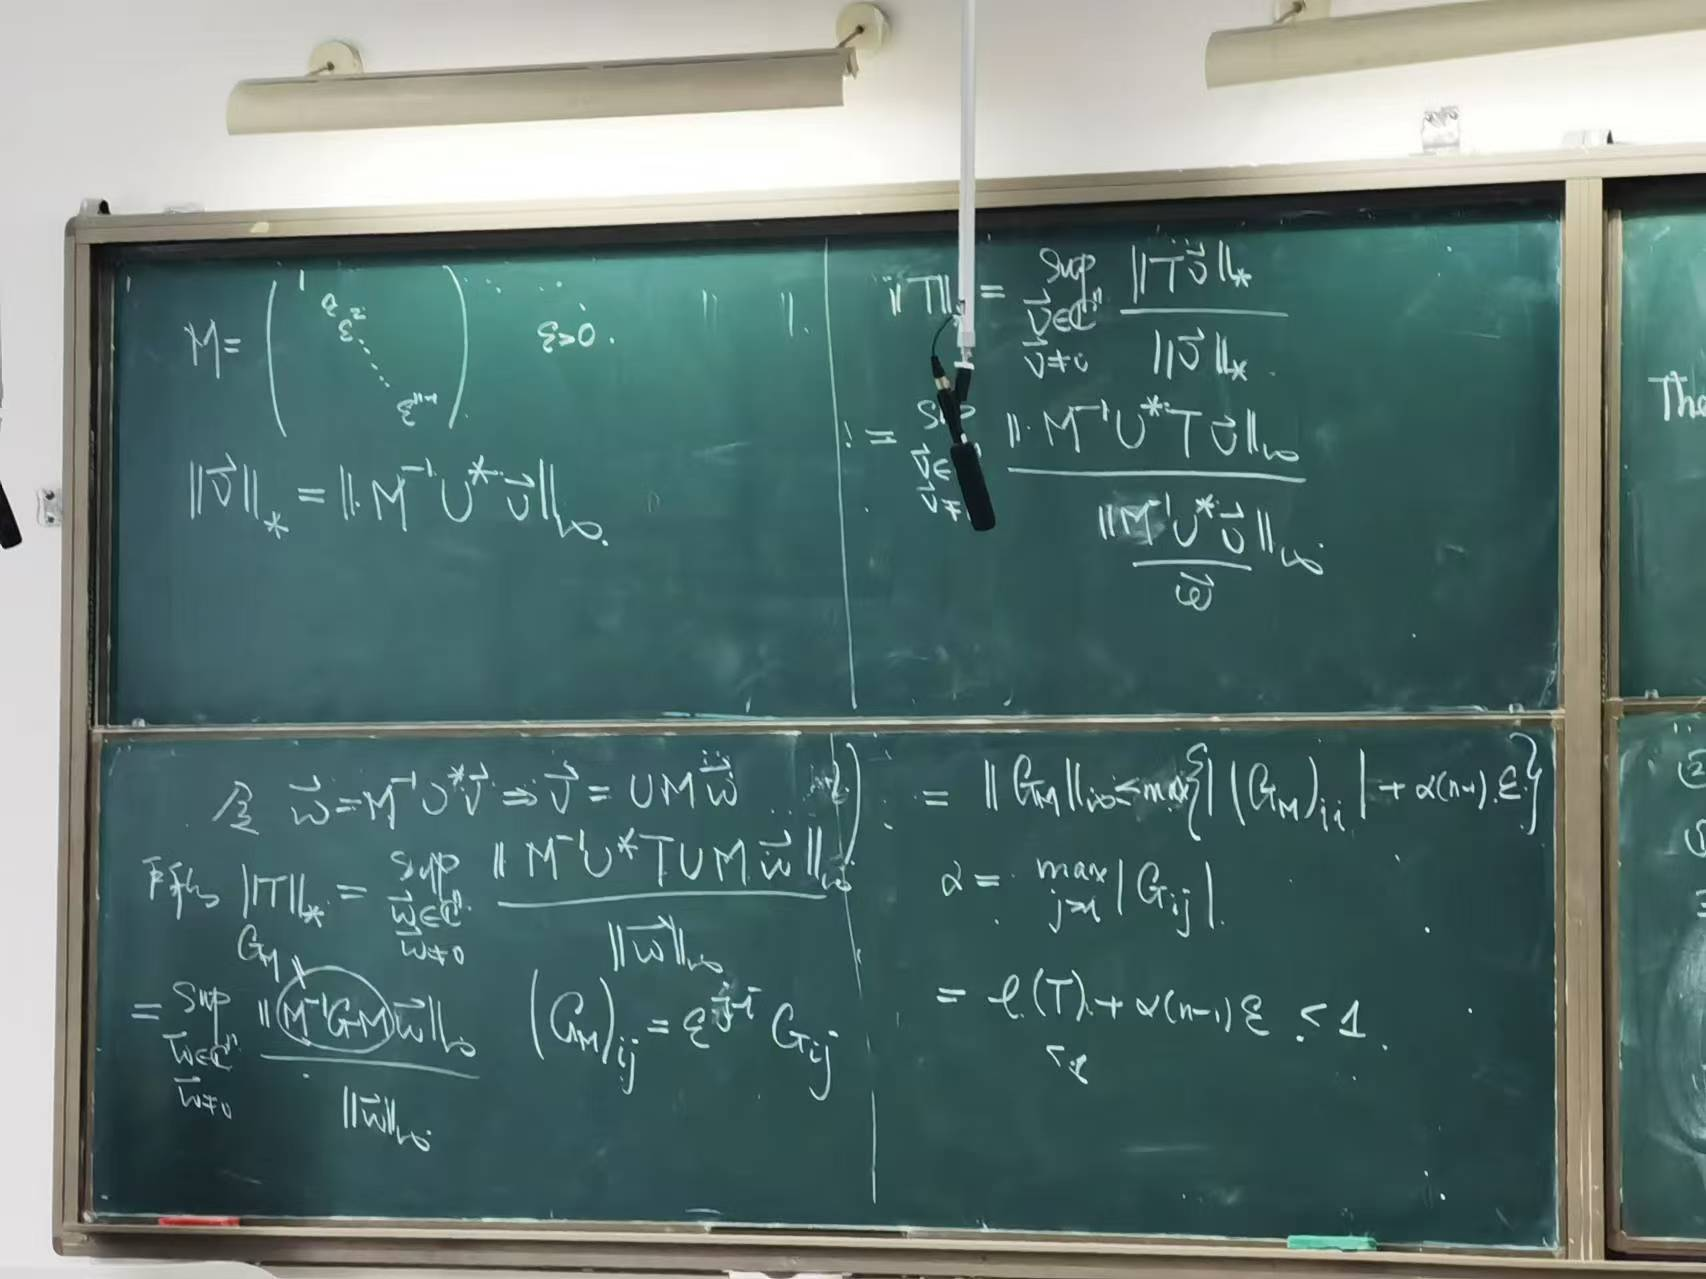 M = ( 1 ε ε² ⋱ εⁿ⁻¹ ) ε>0.
‖v⃗‖_* = ‖M⁻¹U*v⃗‖_∞.
‖T‖_* = sup_{v⃗∈ℂⁿ, v⃗≠0} ‖Tv⃗‖_* / ‖v⃗‖_*.
= sup ‖M⁻¹U*Tv⃗‖_∞ / ‖M⁻¹U*v⃗‖_∞
w⃗
The
令 w⃗ = M⁻¹U*v⃗ ⇒ v⃗ = UMw⃗
所以 ‖T‖_* = sup_{w⃗∈ℂⁿ, w⃗≠0} ‖M⁻¹U*TUMw⃗‖_∞ / ‖w⃗‖_∞
G_M
= sup_{w⃗∈ℂⁿ, w⃗≠0} ‖M⁻¹GMw⃗‖_∞ / ‖w⃗‖_∞. (G_M)_{ij} = ε^{j-i} G_{ij}
= ‖G_M‖_∞ ≤ max{|(G_M)_{ii}| + α(n-1)ε}
α = max_{j>i} |G_{ij}|.
= ρ(T) + α(n-1)ε < 1.
<1